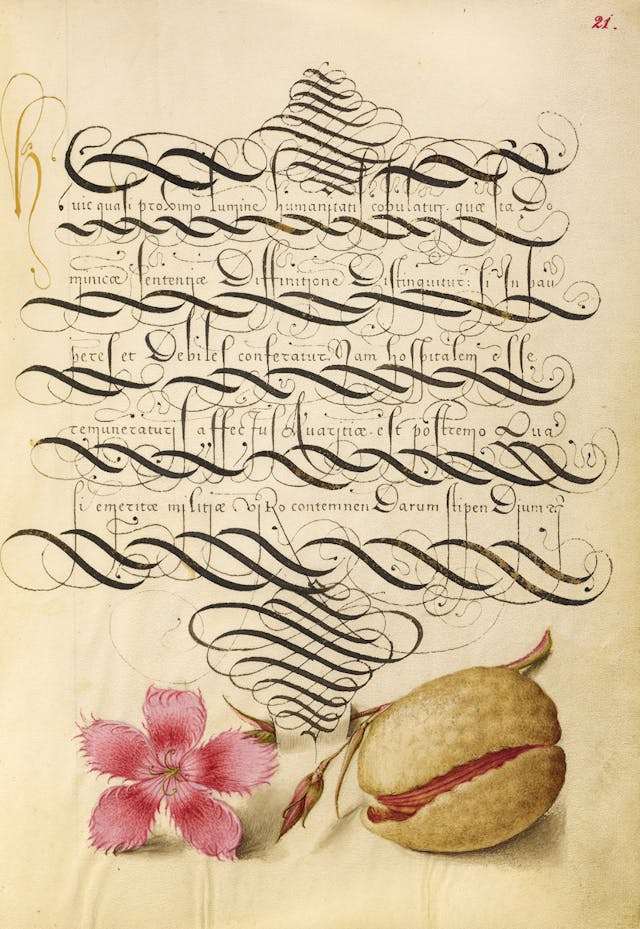 21.
H
uic quasi proximo lumine humanitati copulatur. quæ Ita Do
minicæ sententiæ Diffinitione Distinguitur: si In pau
peres et Debiles conferatur. Nam hospitalem esse
remuneraturis affectus Avaritiæ. est postremo Qua
si emeritæ militiæ viRo contemnenDarum stipenDium